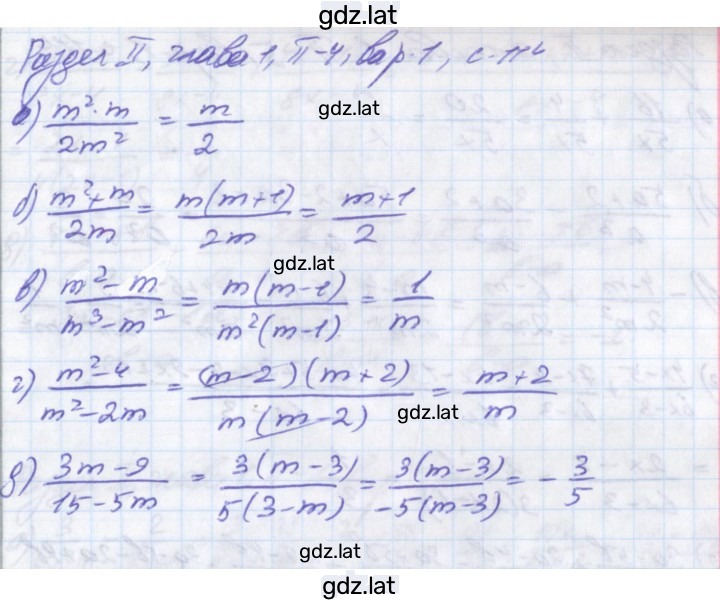 gdz.lat
Раздел II, глава 1, П-4, вар. 1, с. 112
gdz.lat
а) \frac{m^2 \cdot m}{2m^2} = \frac{m}{2}
б) \frac{m^2+m}{2m} = \frac{m(m+1)}{2m} = \frac{m+1}{2}
gdz.lat
в) \frac{m^2-m}{m^3-m^2} = \frac{m(m-1)}{m^2(m-1)} = \frac{1}{m}
г) \frac{m^2-4}{m^2-2m} = \frac{(m-2)(m+2)}{m(m-2)} = \frac{m+2}{m}
gdz.lat
д) \frac{3m-9}{15-5m} = \frac{3(m-3)}{5(3-m)} = \frac{3(m-3)}{-5(m-3)} = -\frac{3}{5}
gdz.lat
gdz.lat